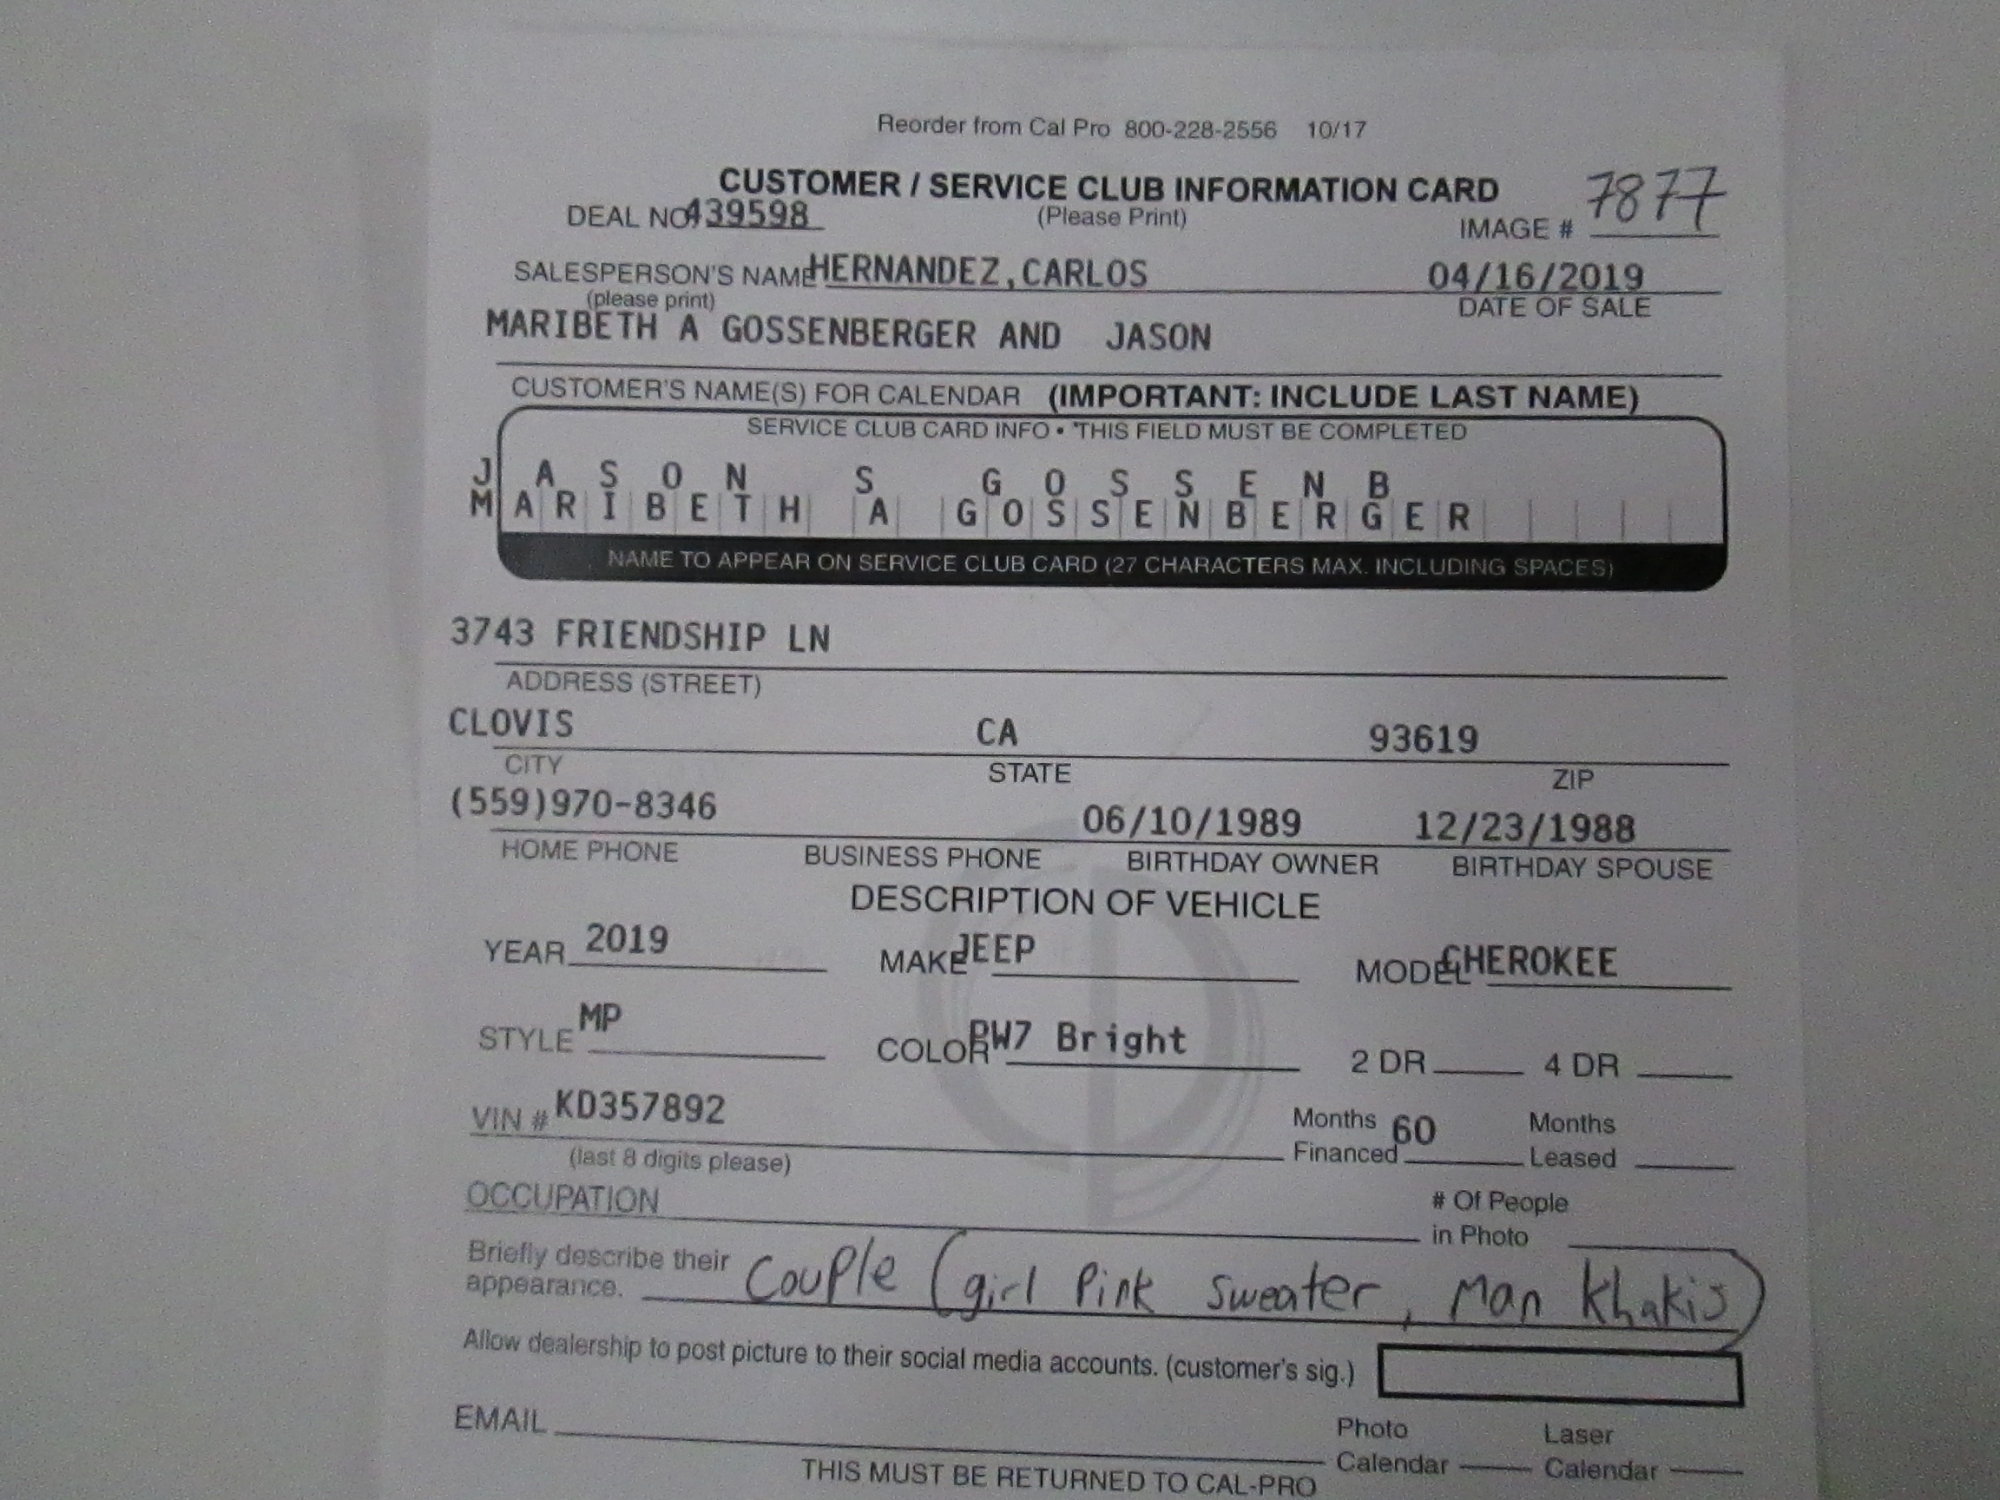 Reorder from Cal Pro 800-228-2556 10/17
CUSTOMER / SERVICE CLUB INFORMATION CARD
DEAL NO 439598 (Please Print) IMAGE # 7877
SALESPERSON'S NAME HERNANDEZ,CARLOS 04/16/2019
(please print) DATE OF SALE
MARIBETH A GOSSENBERGER AND JASON
CUSTOMER'S NAME(S) FOR CALENDAR (IMPORTANT: INCLUDE LAST NAME)
SERVICE CLUB CARD INFO • *THIS FIELD MUST BE COMPLETED
JASON S GOSSENB
MARIBETH A GOSSENBERGER
NAME TO APPEAR ON SERVICE CLUB CARD (27 CHARACTERS MAX. INCLUDING SPACES)
3743 FRIENDSHIP LN
ADDRESS (STREET)
CLOVIS CA 93619
CITY STATE ZIP
(559)970-8346 06/10/1989 12/23/1988
HOME PHONE BUSINESS PHONE BIRTHDAY OWNER BIRTHDAY SPOUSE
DESCRIPTION OF VEHICLE
YEAR 2019 MAKE JEEP MODEL CHEROKEE
STYLE MP COLOR PW7 Bright 2 DR 4 DR
VIN # KD357892 Months Financed 60 Months Leased
(last 8 digits please)
OCCUPATION # Of People in Photo
Briefly describe their appearance. Couple (girl Pink sweater, Man khakis)
Allow dealership to post picture to their social media accounts. (customer's sig.)
EMAIL Photo Calendar Laser Calendar
THIS MUST BE RETURNED TO CAL-PRO